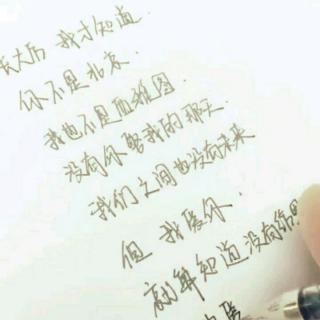 长大后 我才知道.
你不是北京.
我也不是西雅图.
没有你给我的那天
我们之间也没有未来
但 我爱你.
知道没有